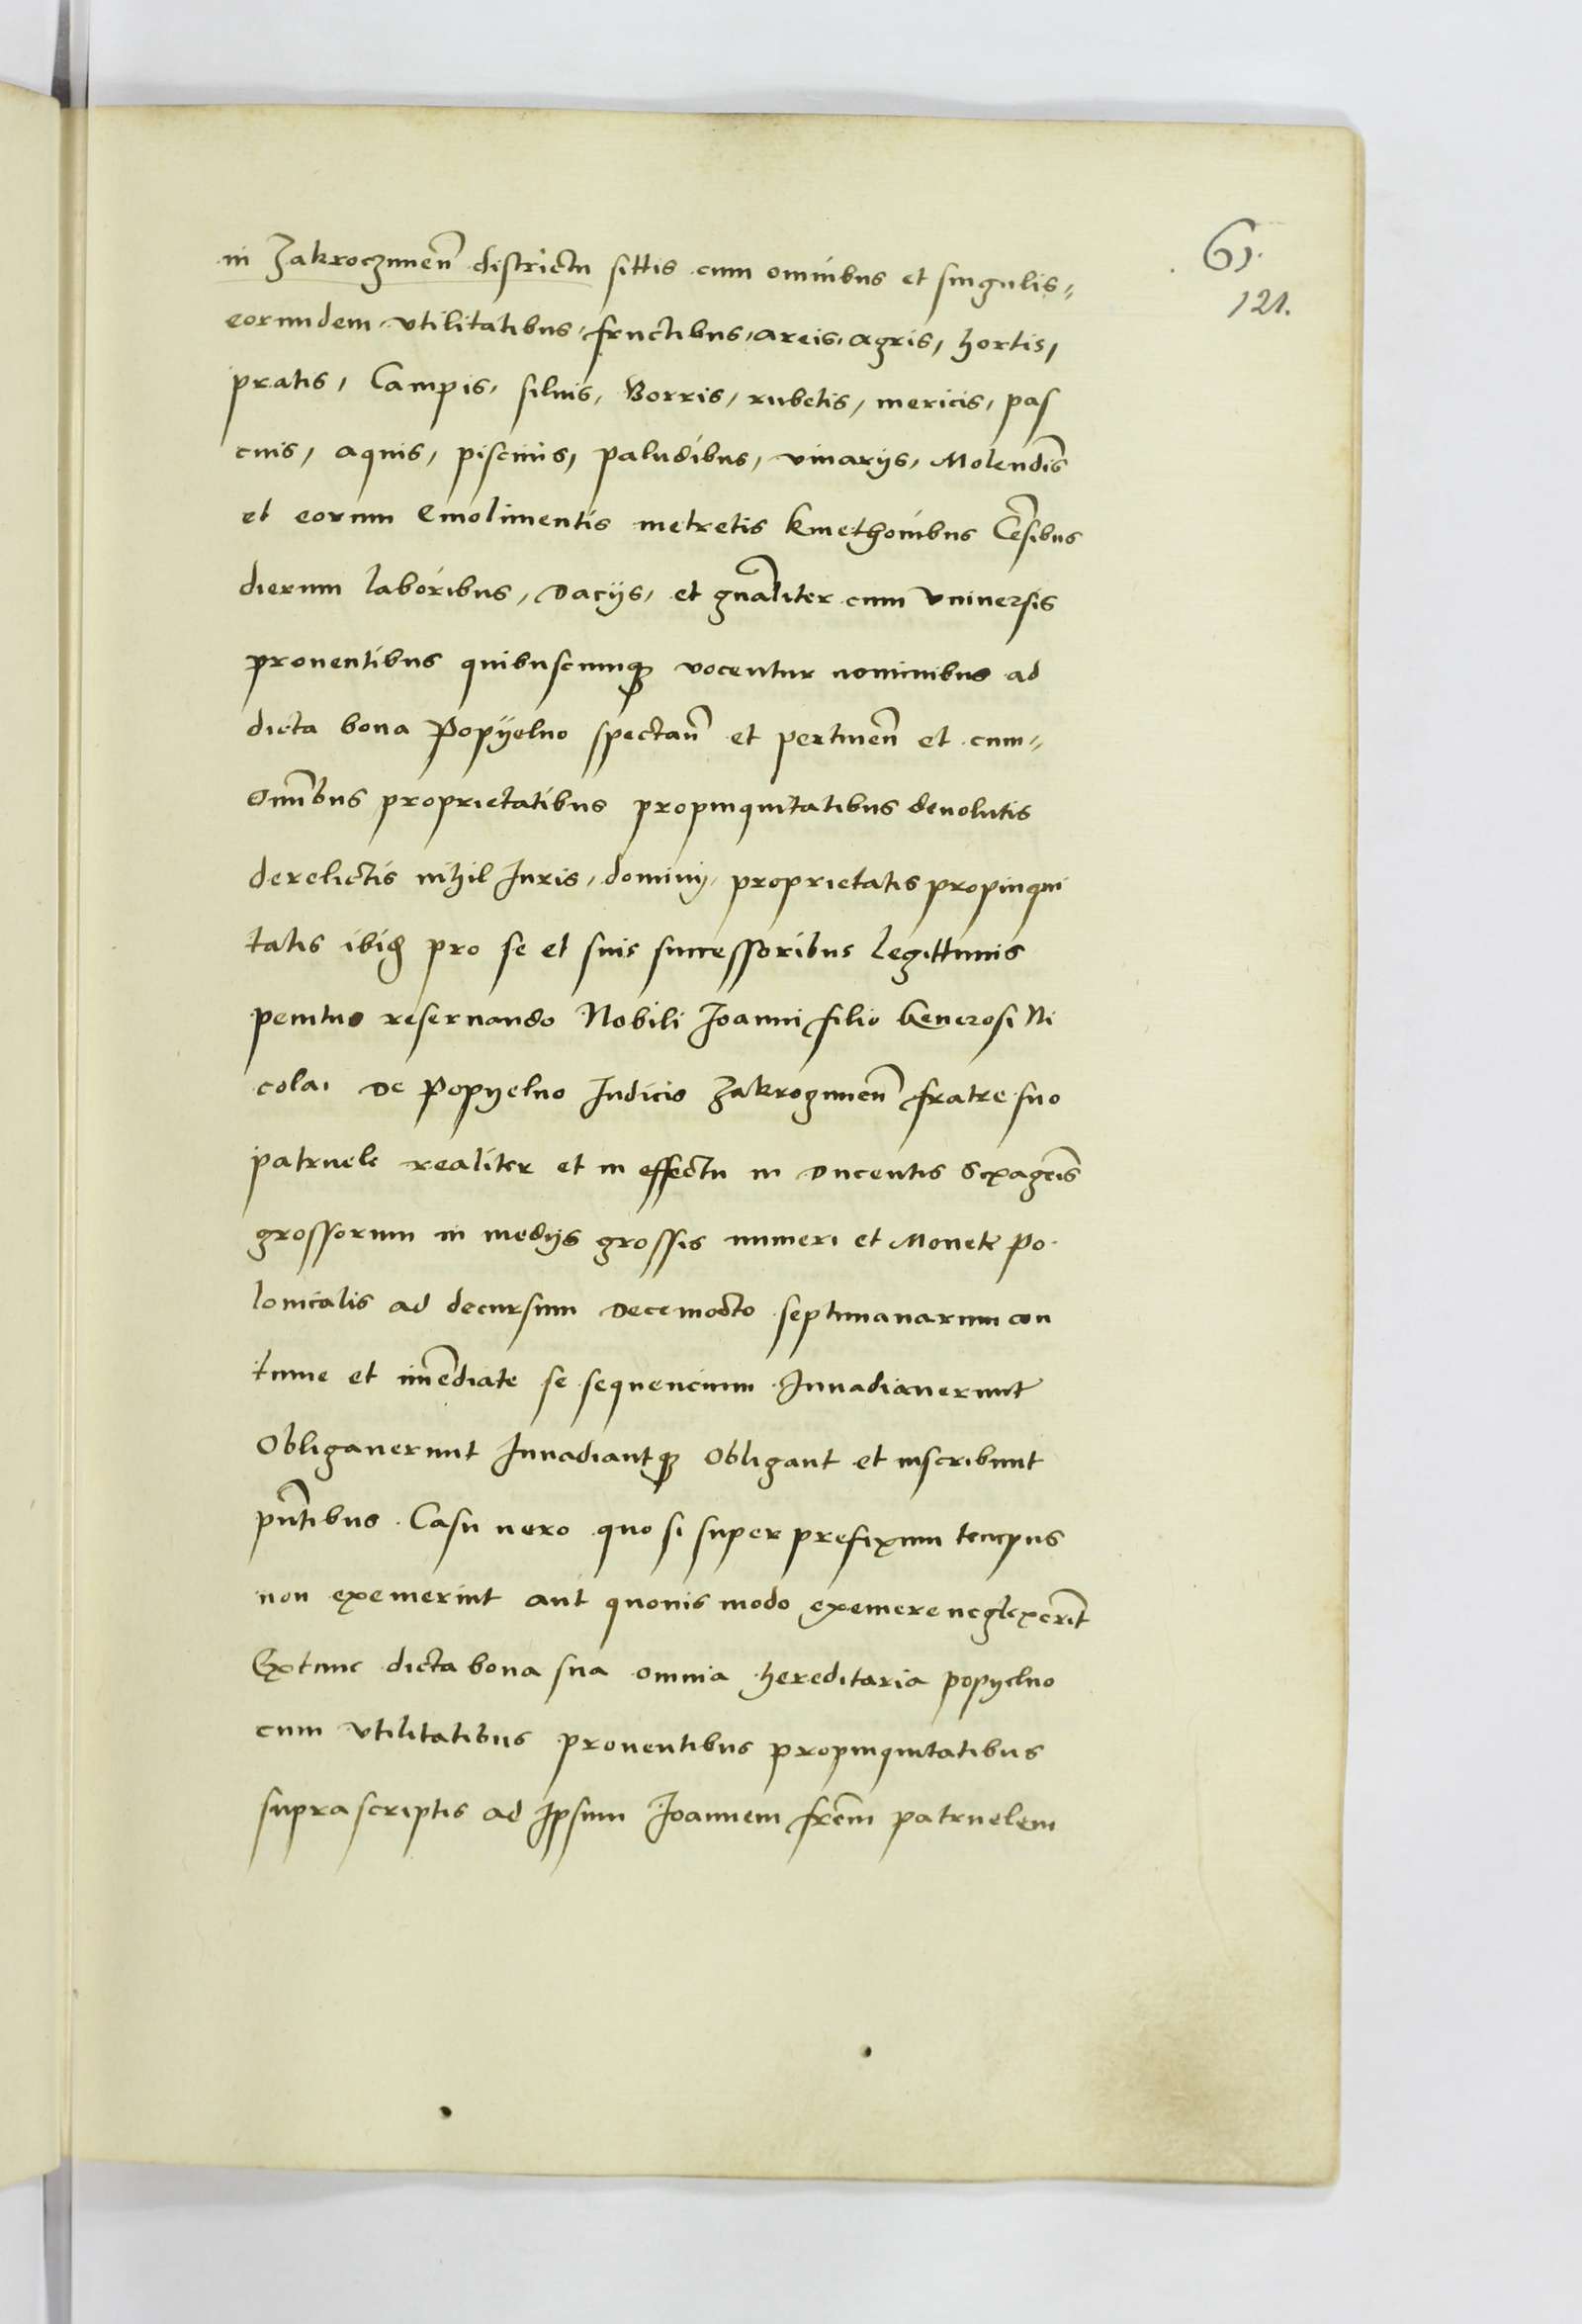 61.
121.
in Zakroczimen̄ districtu sittis cum omnibus et singulis„
eorumdem vtilitatibus, fructibus, areis, agris, hortis,
pratis, Campis, siluis, Borris, rubetis, mericis, pas
cuis, aquis, piscinis, paludibus, viuarijs, Molendīs
et eorum Emolimentis metretis kmethonibus Cēsibus
dierum laboribus, Dacijs, et gnāliter cum Vniuersis
prouentibus quibuscumqꝫ vocentur nominibus ad
dicta bona Popÿelno spectan̄ et pertinen̄ et cum„
Omībus proprietatibus propinquitatibus deuolutis
derelictis nihil Juris, dominij, proprietatis propinqui
tatis ibid̄ pro se et suis successoribus Legittimis
penitus reseruando Nobili Joanni filio Generosi Ni
colai De Popyelno Judicis Zakrogimen̄ fratre suo
patruele realiter et in effectu in Ducentis Sexagēis
grossorum in medijs grossis numeri et Monete po
lonicalis ad decursum Decemocto septimanarum con
tinue et imēdiate se sequencium Inuadiauerunt
Obligauerunt Inuadiantqꝫ Obligant et inscribunt
pn̄tibus. Casu uero quo si super prefixum tempus
non exemerint aut quouis modo exemere neglexerīt
Extunc dicta bona sua omnia hereditaria popyelno
cum Vtilitatibus prouentibus propinquitatibus
supra scriptis ad Ipsum Joannem frēm patruelem